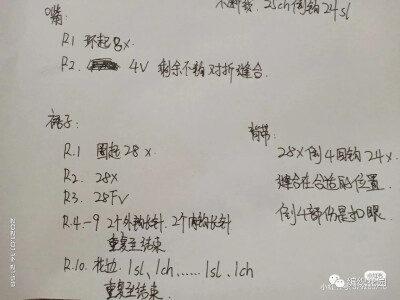 不断线，25ch倒钩24sl
嘴:
R1 环起8x.
R2. 4V 剩余不钩对折缝合.
裙子:
R.1 圈起28x.
R2. 28x
R3. 28FV
R.4-9 2个外钩长针. 2个内钩长针
重复至结束
R.10. 花边. 1sl、1ch......1sl.1ch
重复至结束
背带:
28x倒4回钩24x.
缝合在合适的位置.
倒4部份是扣眼.
小红书
编织花园